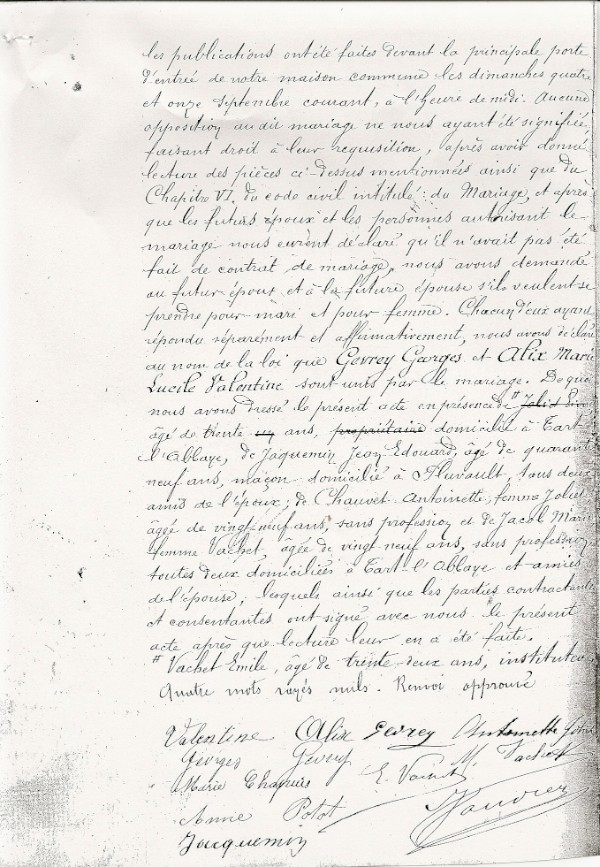 les publications ont été faites devant la principale porte
d'entrée de notre maison commune les dimanches quatre
et onze Septembre courant, à l'heure de midi. Aucune
opposition audit mariage ne nous ayant été signifiée,
faisant droit à leur requisition, après avoir donné
lecture des pièces ci-dessus mentionnées ainsi que du
Chapitre VI. du code civil intitulé: du Mariage, et après
que les futurs époux et les personnes autorisant le
mariage nous eurent déclaré qu'il n'avait pas été
fait de contrat de mariage, nous avons demandé
au futur époux et à la future épouse s'ils veulent se
prendre pour mari et pour femme. Chacun d'eux ayant
répondu séparément et affirmativement, nous avons déclaré
au nom de la loi que Gevrey Georges et Alix Marie
Lucile Valentine sont unis par le mariage. De quoi
nous avons dressé le présent acte en présence de # Joliet
âgé de trente un ans, propriétaire domicilié à Tart
l'Abbaye, de Jaquemin Jean-Edouard, âgé de quarante
neuf ans, maçon domicilié à Fluvault, tous deux
amis de l'époux; de Chauvet Antoinette, femme Joliet
âgée de vingt neuf ans, sans profession et de Jacob Marie
femme Vachet, âgée de vingt neuf ans, sans profession
toutes deux domiciliées à Tart-l'Abbaye et amies
de l'épouse; lesquels ainsi que les parties contractantes
et consentantes ont signé avec nous le présent
acte après que lecture leur en a été faite.
# Vachet Emile, âgé de trente deux ans, instituteur
Quatre mots rayés nuls. Renvoi approuvé
Valentine Alix Gevrey Antoinette
Georges Gevrey M. Vachet
Marie Chapuis E. Vachet
Annie Potot
Jacquemin